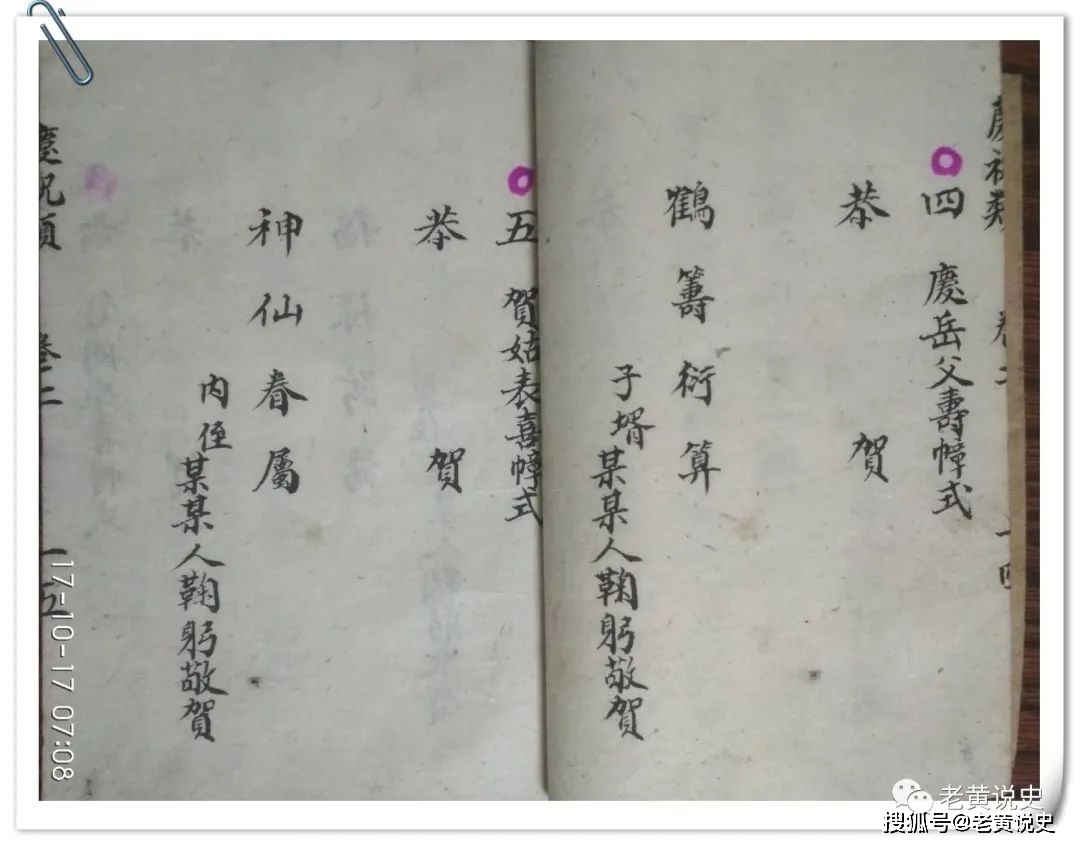 慶祝類 卷二 一四
四 慶岳父壽幛式
恭 賀
鶴籌衍算
子壻某某人鞠躬敬賀
五 賀姑表喜幛式
恭 賀
神仙眷屬
内侄某某人鞠躬敬賀
慶祝類 卷二 一五
17-10-17 07:08
老黄说史
搜狐号@老黄说史